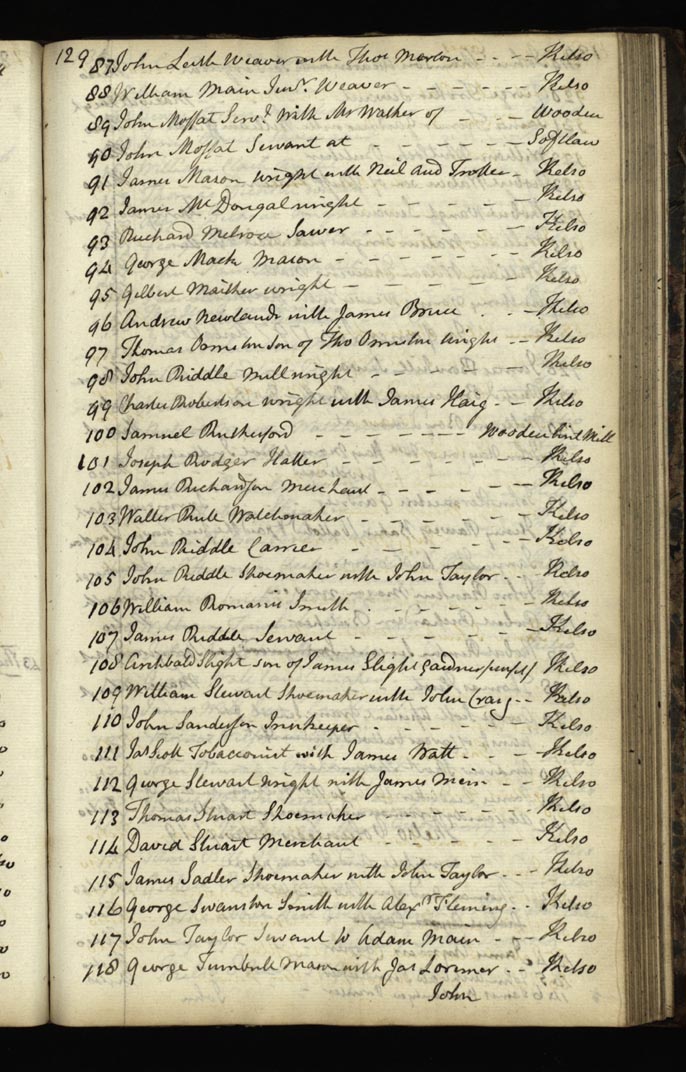 129
87 John Leith Weaver with Thos Merton - - - - Kelso
88 William Main Junr. Weaver - - - - - Kelso
89 John Moffat Servt. with Mr Walker of - - - Wooden
90 John Moffat Servant at - - - - - - Softlaw
91 James Mason wright with Neil and Trotter - Kelso
92 James McDougal wright - - - - - - Kelso
93 Richard Melrose Sawer - - - - - - Kelso
94 George Mack Mason - - - - - - - Kelso
95 Gilbert Maither wright - - - - - - Kelso
96 Andrew Newlands with James Bruce . . - Kelso
97 Thomas Ormiston son of Tho Ormiston wright - - Kelso
98 John Riddle Millwright - - - - - - Kelso
99 Charles Robertson wright with James Haig - - Kelso
100 Samuel Rutherford - - - - - - - Wooden lint Mill
101 Joseph Rodger Hatter - - - - - - Kelso
102 James Richardson Merchant - - - - - - Kelso
103 Walter Rule Watchmaker - - - - - - Kelso
104 John Riddle Carrier - - - - - - Kelso
105 John Riddle Shoemaker with John Taylor . . Kelso
106 William Romanis Smith . - - - - - Kelso
107 James Riddle Servant - - - - - - Kelso
108 Archbald Slight son of James Slight Gardner Kelso
109 William Stewart Shoemaker with John Craig - - Kelso
110 John Sanderson Innkeeper - - - - - - Kelso
111 Jas Scott Tobacconist with James Watt - - - Kelso
112 George Stewart wright with James Mein - - Kelso
113 Thomas Stuart Shoemaker - - - - - - Kelso
114 David Stuart Merchant - - - - - Kelso
115 James Sadler Shoemaker with John Taylor - - - Kelso
116 George Swanston Smith with Alexr Fleming - . Kelso
117 John Taylor Servant to Adam Main - - - Kelso
118 George Turnbull Mason with Jas Lorimer - - Kelso
John